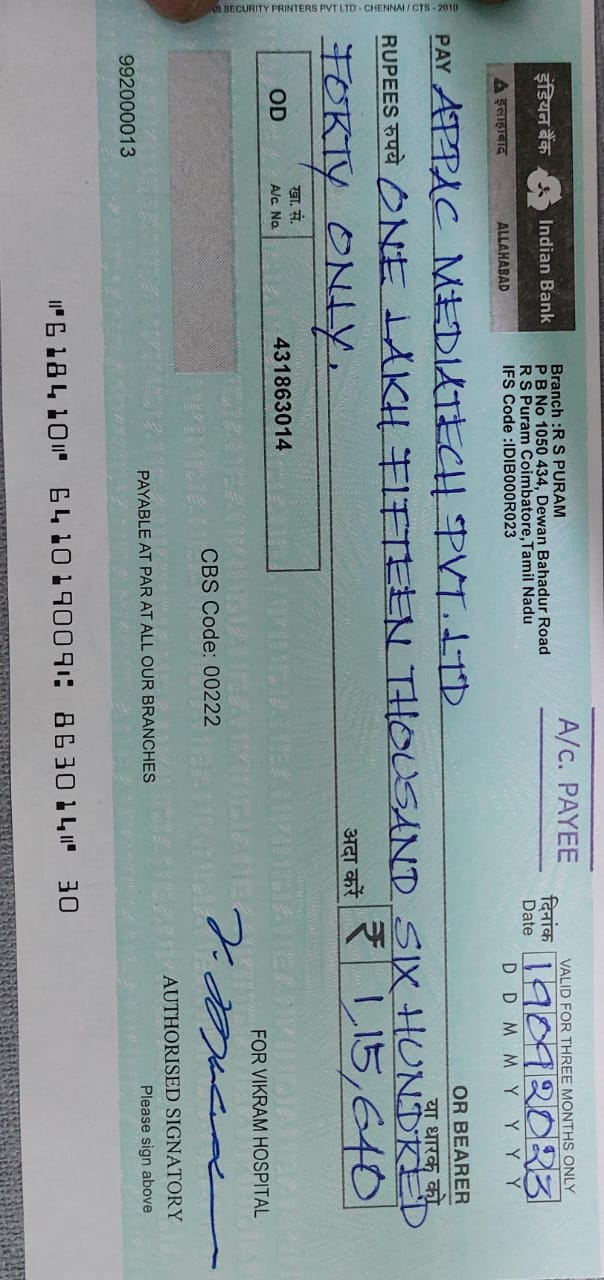 इंडियन बैंक Indian Bank
इलाहाबाद ALLAHABAD
Branch :R S PURAM
P B No 1050 434, Dewan Bahadur Road
R S Puram Coimbatore,Tamil Nadu
IFS Code :IDIB000R023
A/c. PAYEE
VALID FOR THREE MONTHS ONLY
दिनांक
Date 19092023
D D M M Y Y Y Y
PAY APPAC MEDIATECH PVT. LTD OR BEARER
या धारक को
RUPEES रुपये ONE LAKH FIFTEEN THOUSAND SIX HUNDRED
FORTY ONLY. अदा करें ₹ 1,15,640
OD खा. सं. A/c. No. 431863014
FOR VIKRAM HOSPITAL
CBS Code: 00222
AUTHORISED SIGNATORY
Please sign above
PAYABLE AT PAR AT ALL OUR BRANCHES
992000013
⑈618410⑈ 641019009⑆ 863014⑈ 30
SECURITY PRINTERS PVT LTD - CHENNAI / CTS - 2010